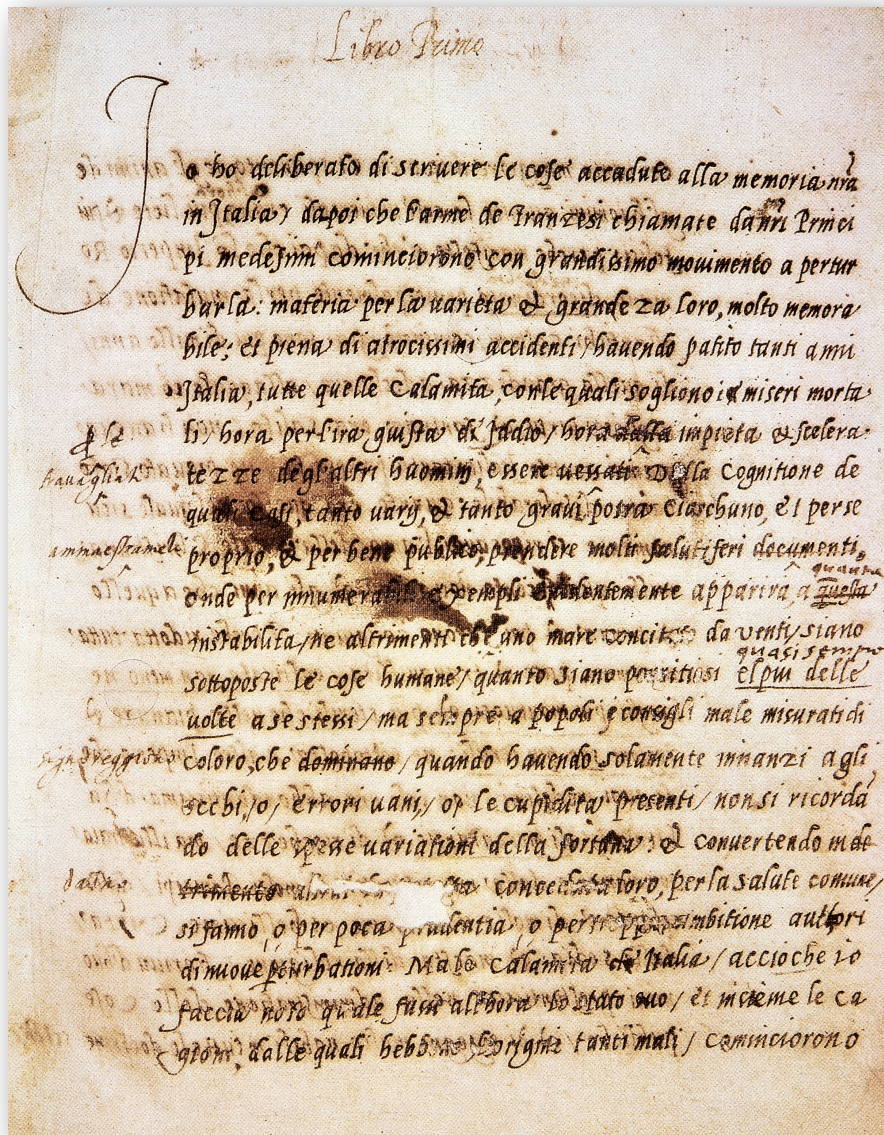 Libro Primo
Io ho deliberato di scrivere le cose accadute alla memoria nrã
in Italia / dapoi che l'arme de Franzesi chiamate da nri Princi
pi medesimi cominciorono con grandissimo movimento a pertur
barla: materia per la varieta & grandeza loro, molto memora
bile; et piena di atrocissimi accidenti / havendo patito tanti anni
Italia, tutte quelle Calamita, con le quali sogliono i miseri morta
li / hora per l'ira giusta di Iddio / hora dalla impieta & scelera
tezze degl'altri huominj, essere vessati Della Cognitione de
quali Casi, tanto varij, & tanto gravi potrà Ciaschuno, et per se
proprio, & per bene publico, prendere molti salutiferi documenti,
ammaestramēti
onde per innumerabili exempli evidentemente apparirà, a quanta questa
instabilita / ne altrimenti che uno mare concitato da venti / siano
quasi sempre
sottoposte le cose humane / quanto siano pernitiosi el piu delle
volte a se stessi / ma sempre a popoli e consigli male misurati di
coloro, che dominano / quando havendo solamente innanzi agli
occhi, / o / errori vani, / o / le cupidita presenti / non si ricordã
do delle spesse variationi della fortuna: & convertendo in de
trimento conceduta loro, per la salute comune /
si fanno, o per poca prudentia, o per troppa ambitione auttori
di nuove pturbationi. Ma le Calamita di Italia / accioche io
faccia noto quale fussi all'hora lo stato suo / et insieme le ca
gioni, dalle quali hebbono l'origine tanti mali / cominciorono